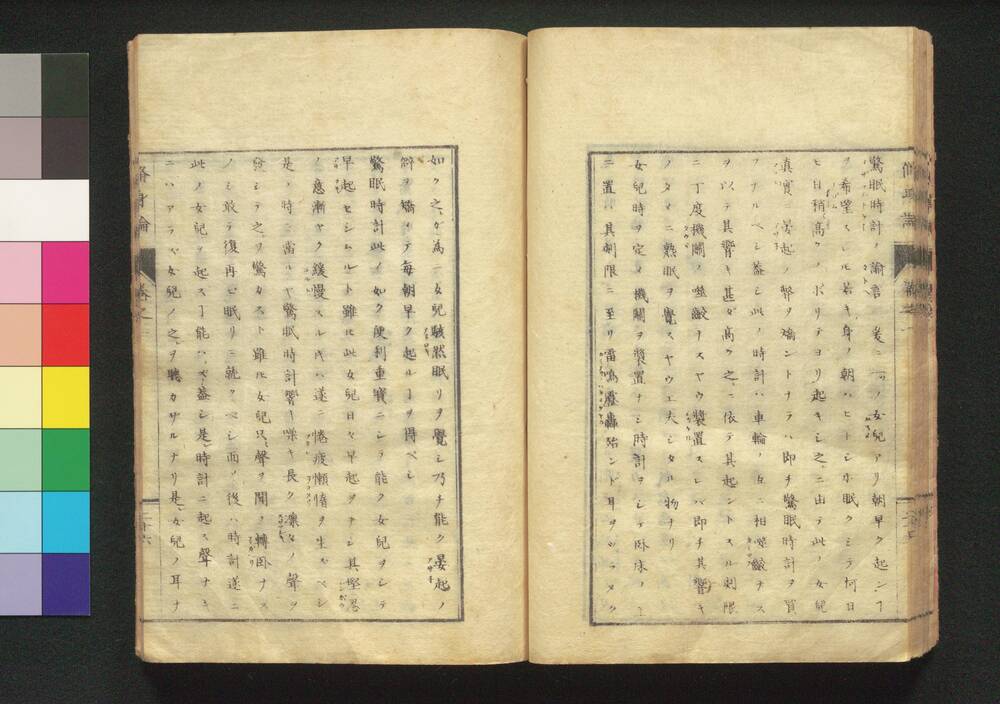 驚眠時計ノ諭言 爰ニ一ノ女兒アリ朝早ク起ンヿ
ヲ希望スレ𪜈若キ身ノ朝ハヒトシホ眠クシテ何日
ヒ日稍高クノボリテヨリ起キシ之ニ由テ此ノ女兒
真實ニ晏起ノ弊ヲ矯ントナラハ即チ驚眠時計ヲ買
フナルベシ蓋シ此ノ時計ハ車輪ノ互ニ相噬齩ナス
ヲ以テ其響キ甚ダ高ク之ニ依テ其起ントスル刺限
ニ丁度機關ノ噬齩ヲナスヤウ裝置スレバ即チ其響キ
ノタメニ熟眠ヲ覺スヤウ工夫シタル物ナリ
女兒時ヲ定メ機關ヲ裝置ナシ時計ヲシテ臥床ノ上
ニ置 其刺限ニ至リ雷鳴 轟殆ンド耳ヲツラヌク
如ク之ガ為一女兒駭然眠リヲ覺シ乃チ能ク晏起ノ
癖ヲ矯メテ每朝早ク起ルヿヲ得ベシ
驚眠時計此ノ如ク便利重寶ニシテ能ク女兒ヲシテ
早起セシムルト雖𪜈此女兒日々早起ヲナシ其堅忍
ノ意漸ヤク緩慢スル𪜈ハ遂ニ倦疲懶惰ヲ生ズベシ
是ノ時ニ當ルヤ驚眠時計響キ喋キ長ク凛々ノ聲ヲ
發シテ之ヲ驚カスト雖𪜈女兒只聲ヲ聞キ轉臥ナス
ノミ敢テ復再ビ眠リニ就クベシ而ノ後ハ時計遂ニ
此ノ女兒ヲ起スヿ能ハズ蓋シ是時計ニ起ス聲ナキ
ニハアラズ女兒ノ之ヲ聽カザルナリ是女兒ノ耳ナ
脩身論
卷之